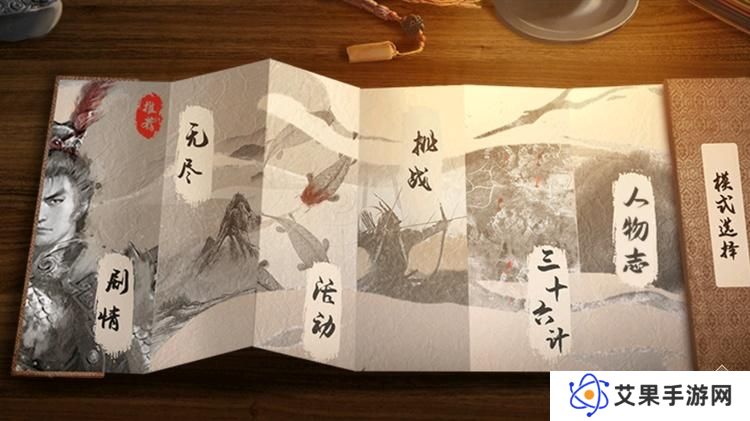 推荐
剧情
无尽
活动
挑战
三十六计
人物志
模式选择
艾果手游网